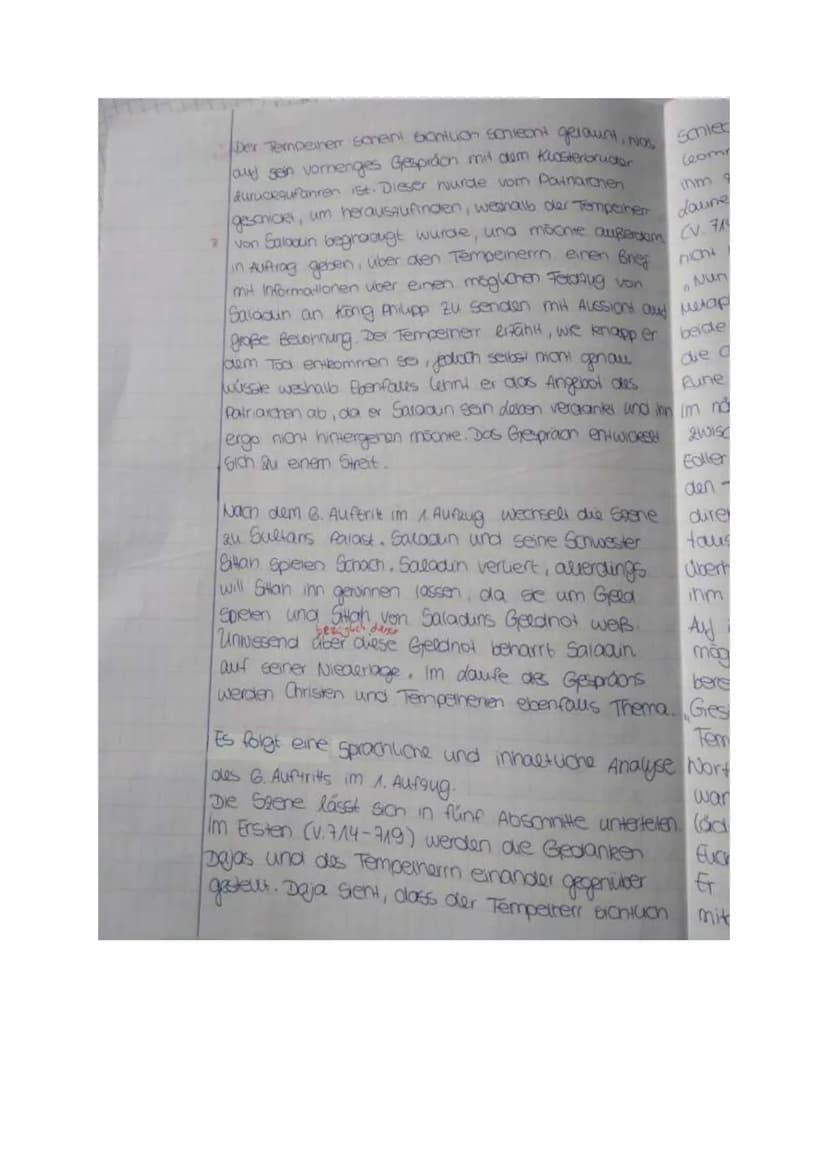 Der Tempelherr scheint sichtlich schlecht gelaunt, was
auf sein vorheriges Gespräch mit dem Klosterbruder
zurückzuführen ist. Dieser wurde vom Patriarchen
geschickt, um herauszufinden, weshalb der Tempelherr
von Saladin begnadigt wurde, und möchte außerdem
in Auftrag geben, über den Tempelherrn einen Brief
mit Informationen über einen möglichen Feldzug von
Saladin an König Philipp zu senden mit Aussicht auf
große Belohnung. Der Tempelherr erzählt, wie knapp er
dem Tod entkommen sei, jedoch selbst nicht genau
wüsste weshalb. Ebenfalls lehnt er das Angebot des
Patriarchen ab, da er Saladin sein Leben verdanket und ihn
ergo nicht hintergehen möchte. Das Gespräch entwickelt
sich zu einem Streit.
Nach dem 6. Auftritt im 1. Aufzug wechselt die Szene
zu Sultans Palast. Saladin und seine Schwester
Sittah spielen Schach. Saladin verliert, allerdings
will Sittah ihn gewinnen lassen, da sie um Geld
spielen und Sittah von Saladins Geldnot weiß.
bezüglich dieser
Unwissend über diese Geldnot beharrt Saladin
auf seiner Niederlage. Im Laufe des Gesprächs
werden Christen und Tempelherren ebenfalls Thema.
Es folgt eine sprachliche und inhaltliche Analyse
des 6. Auftritts im 1. Aufzug.
Die Szene lässt sich in fünf Abschnitte unterteilen.
Im Ersten (V.714-719) werden die Gedanken
Dajas und des Tempelherrn einander gegenüber
gestellt. Daja sieht, dass der Tempelherr sichtlich
schlec
ihm
(V. 71
nicht
„Nun
beide
die
Im
den
ihm
Auf
mög
Tem
Wort
war
Euch
Er
mit